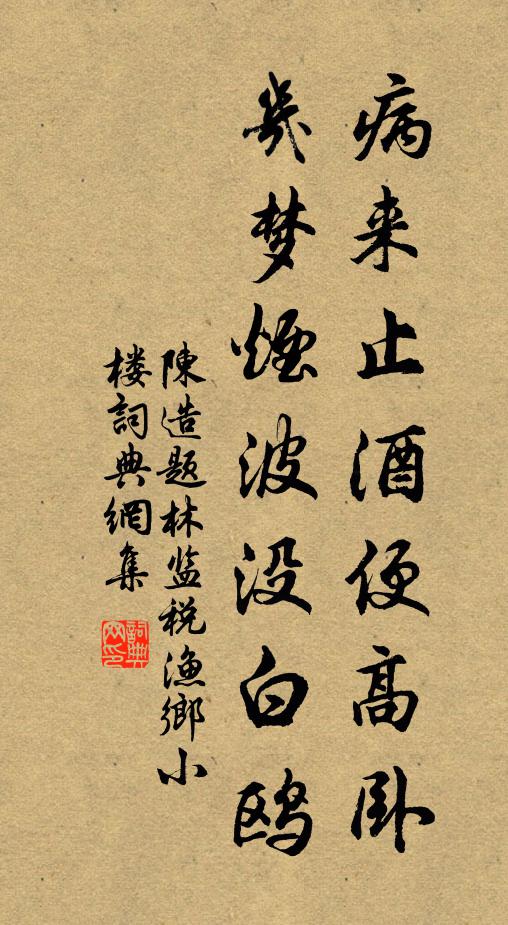 病来止酒便高卧
几梦煙波没白鸥
陳造题林监税漁鄉小
楼詞典網集
詞典网印